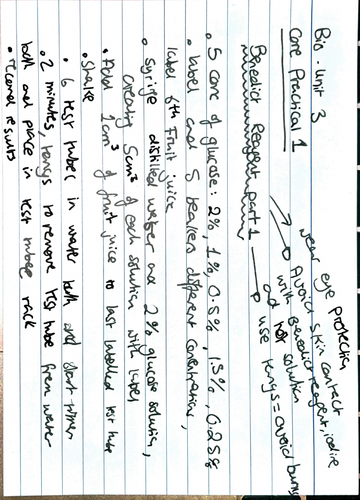 Bio - Unit 3
Core Practical 1
wear eye protection
Avoid skin contact
with Benedict reagent, iodine
and hot solution
use tongs = avoid burns
Benedict Reagent part 1
• 5 conc of glucose: 2%, 1%, 0.5%, 1.5%, 0.25%
• label and 5 beakers different concentration,
label 6th fruit juice
• Syringe distilled water and 2% glucose solution,
creating 5cm³ of each solution with label
• Add 1cm³ of fruit juice to last labelled test tube
• Shake
• 6 test tubes in water bath and start timer
• 2 minutes, tongs to remove test tube from water
bath and place in test tube rack
• record results